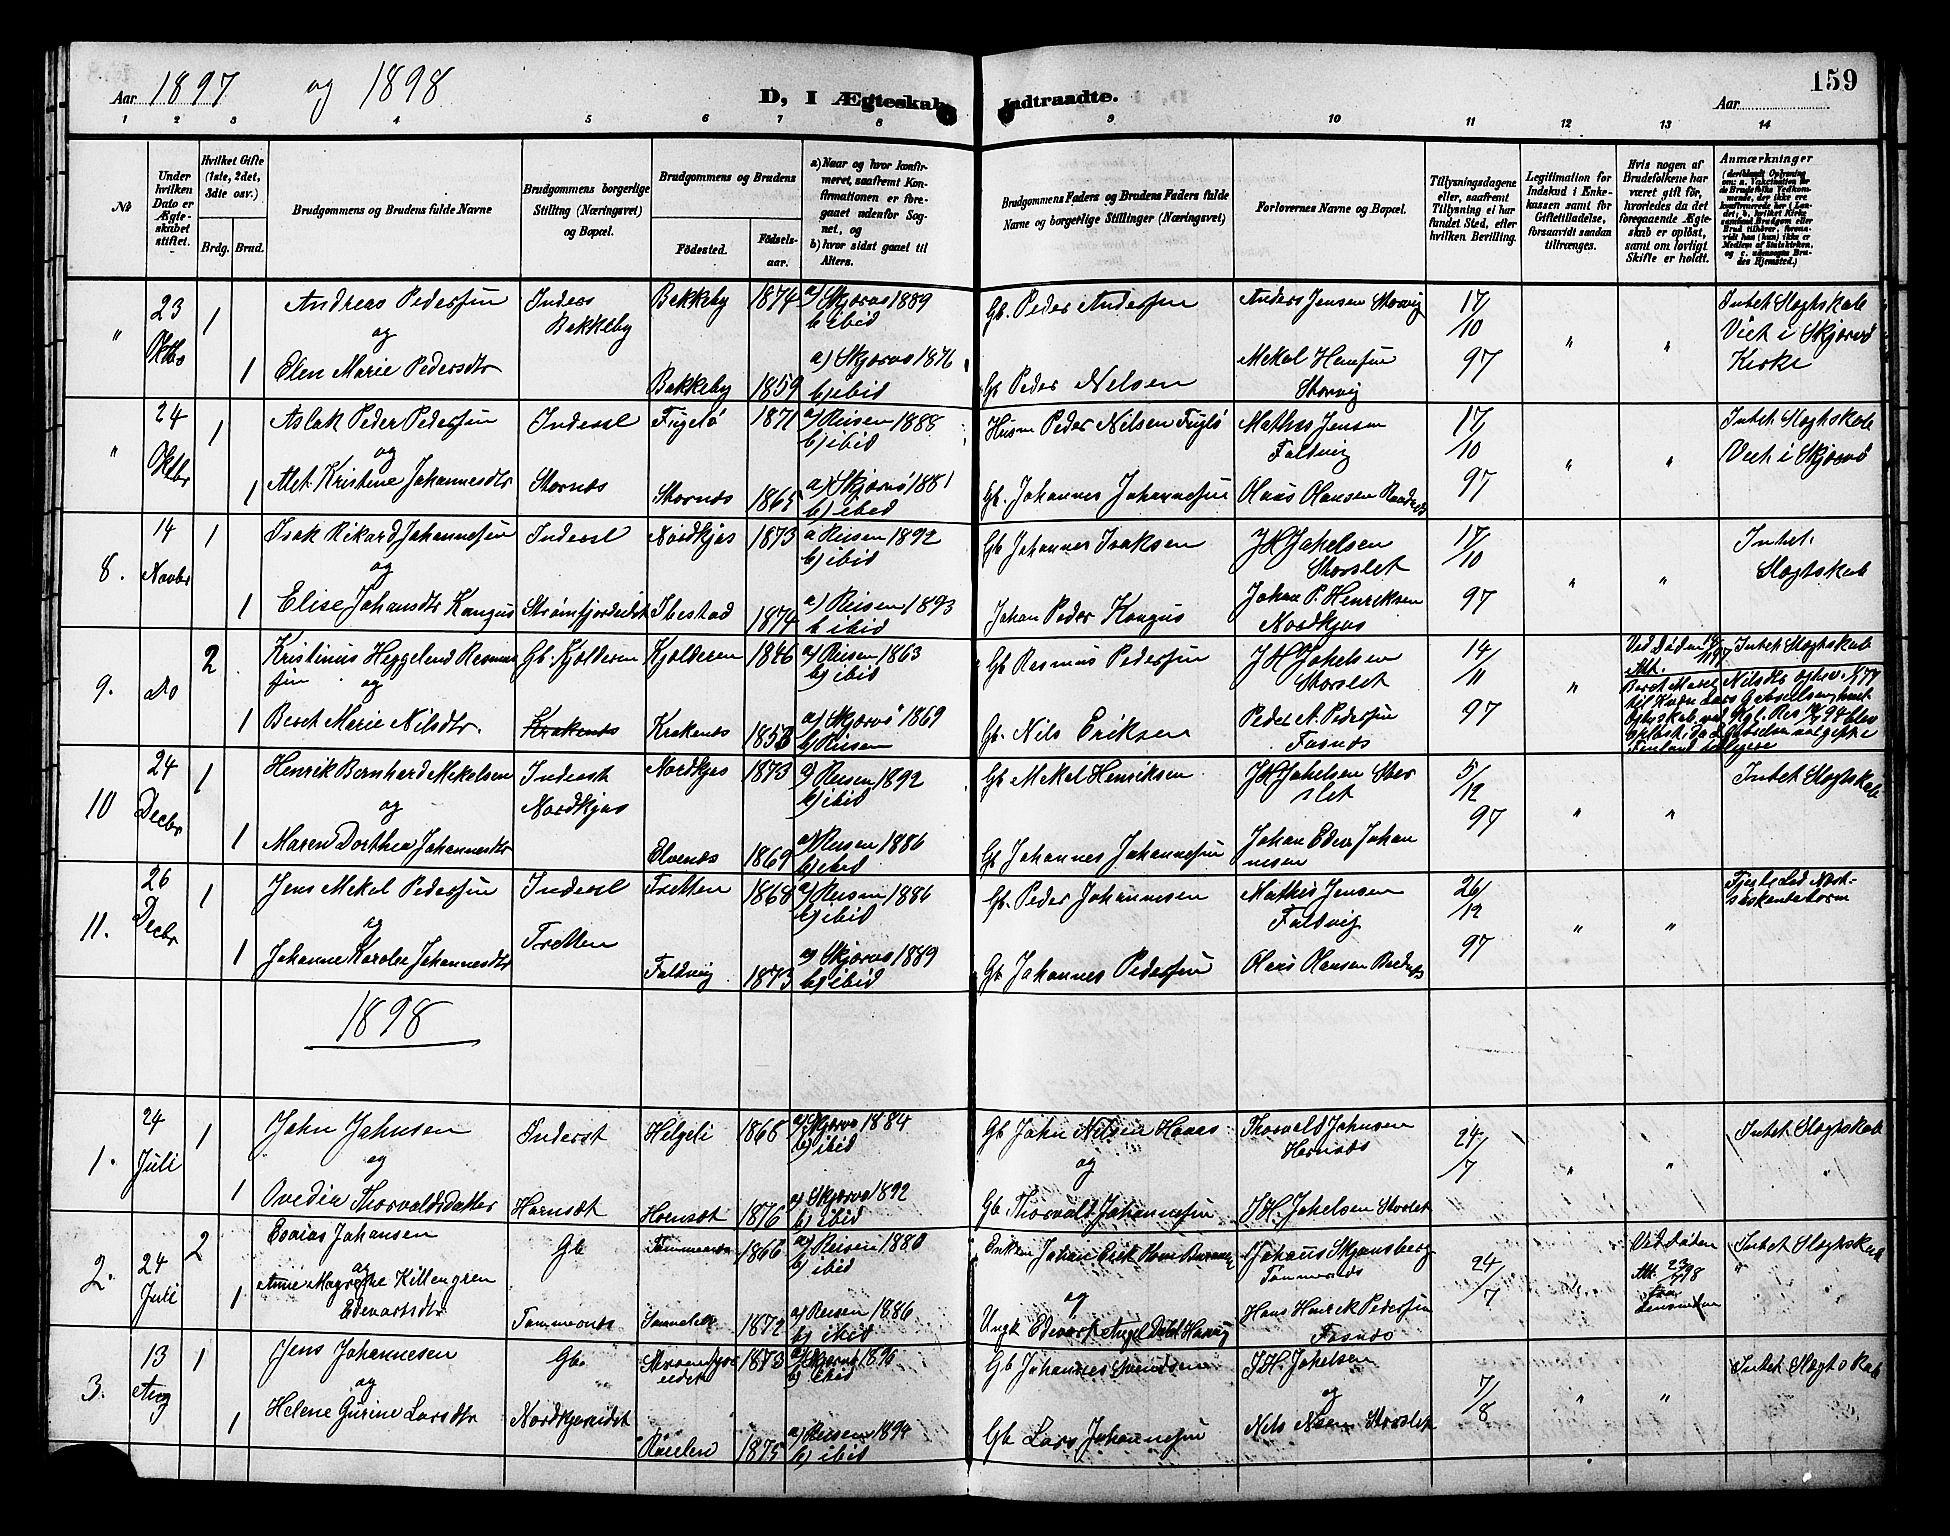 Aar 1897 og 1898
D, I Ægteskab Indtraadte.
159
Aar
1 2 3 4 5 6 7 8 9 10 11 12 13 14
No
Under hvilken Dato er Ægteskabet stiftet.
Hvilket Gifte (1ste, 2det, 3die osv.)
Brdg. Brud.
Brudgommens og Brudens fulde Navne
Brudgommens borgerlige Stilling (Næringsvei) og Bopæl.
Brudgommens og Brudens
Födested.
Födselsaar.
a) Naar og hvor konfirmeret, saafremt Konfirmationen er foregaaet udenfor Sognet, og
b) hvor sidst gaaet til Alters.
Brudgommens Faders og Brudens Faders fulde Navne og borgerlige Stillinger (Næringsvei)
Forlovernes Navne og Bopæl.
Tillysningsdagene eller, saafremt Tillysning ei har fundet Sted, efter hvilken Bevilling.
Legitimation for Indskud i Enkekassen samt for Giftetilladelse, forsaavidt saadan tiltrænges.
Hvis nogen af Brudefolkene har været gift för, hvorledes da det foregaaende Ægteskab er oplöst, samt om lovligt Skifte er holdt.
Anmærkninger
" 23 Oktbr 1 Andreas Pedersen Inderst Bekkeby Bekkeby 1874 a) Skjervö 1889 b) ibid Gb. Peder Andersen Anders Jensen Storvig 17/10 97 " " Intet Slegtskab Viet i Skjervö Kirke
og
1 Elen Marie Pedersdtr Bekkeby 1859 a) Skjervö 1876 b) ibid Gb Peder Nielsen Mekal Hansen Storvig
" 24 Oktbr 1 Aslak Peder Pedersen Inderst Fuglö 1871 a) Reisen 1888 b) ibid Husm Peder Nilsen Fuglö Mathis Jensen Faldvig 17/10 97 " " Intet Slegtskab Viet i Skjervö
og
1 Kristine Johannesdtr Stornes Stornes 1865 a) Skjervö 1881 b) ibid Gb. Johannes Johannesen Hans Hansen
8. 14 Novbr 1 Isak Rikard Johannesen Inderst Nordkjos 1873 a Reisen 1892 b) ibid Gb Johannes Isaksen J H Jakelsen Storslet 17/10 97 " " Intet Slegtskab
og
1 Elise Johansdtr Kangus Strømfjordeidet Ibestad 1874 a) Reisen 1893 b ibid Johan Peder Kangus Johan P. Henriksen Nordkjos
9. do 2 Kristinus Heggelund Rasmussen Gb. Kjelderen Kjelderen 1846 a) Reisen 1863 b) ibid Gb Rasmus Pedersen J H Jakelsen Storslet 14/11 97 " Ved Döden Intet Slegtskab
og
1 Beret Marie Nilsdtr. Krakenes Krakenes a) Skjervö 1869 b) Reisen Gb. Nils Eriksen Peder A. Pedersen Fosnes
10 24 Decbr 1 Henrik Bernhard Mekelsen Inderst Nordkjos Nordkjos 1873 a) Reisen 1892 b) ibid Gb Mekel Henriksen J H Jakelsen Storslet 5/12 97 " " Intet Slegtskab
og
1 Maren Dorthea Johannesdtr Elvenes 1869 a) Reisen 1886 b) ibid Gb Johannes Johannesen Johan Johannesen
11. 26 Decbr 1 Jens Mekel Pedersen Inderst Tretten Tretten 1868 a) Reisen 1886 b) ibid Gb. Peder Johannesen Mathis Jensen Faldvig 26/12 97 " " Led
og
1 Johanne Karoline Johannesdtr Faldvig 1873 a) Skjervö 1889 b) ibid Gb Johannes Pedersen Hans Hansen
1898
1. 24 Juli 1 John Johnsen Inderst Helgeli 1868 a) Skjervø 1884 b) ibid Gb John Nilsen Thorvald Johnsen 24/7 " " Intet Slegtskab "
og og
1 Ovedia Thorvaldsdatter 1876 a) Skjervø 1892 b) ibid Gb Thorvald Johannesen J H. Jakelsen Storslet
2. 24 Juli 2 Esaias Johansen Gb 1866 a) Reisen 1880 b) ibid Johan Erik Johans Skjønsberg 24/7 " Ved Döden Intet Slegtskab "
og og
1 Killengren Edevartsdtr 1872 a) Reisen 1886 b) ibid Edevart Hans Henrik Pedersen Fosnes
3. 13 Aug 1 Jens Johannesen Gb. 1873 a) Skjervö b) ibid Gb Johannes J H. Jakelsen 7/8 " " Intet Slegtskab
og og
1 Helene Gurine Larsdtr Nordkjoseidet 1875 a) Reisen b) ibid Gb Lars Johannesen Nils Storslet